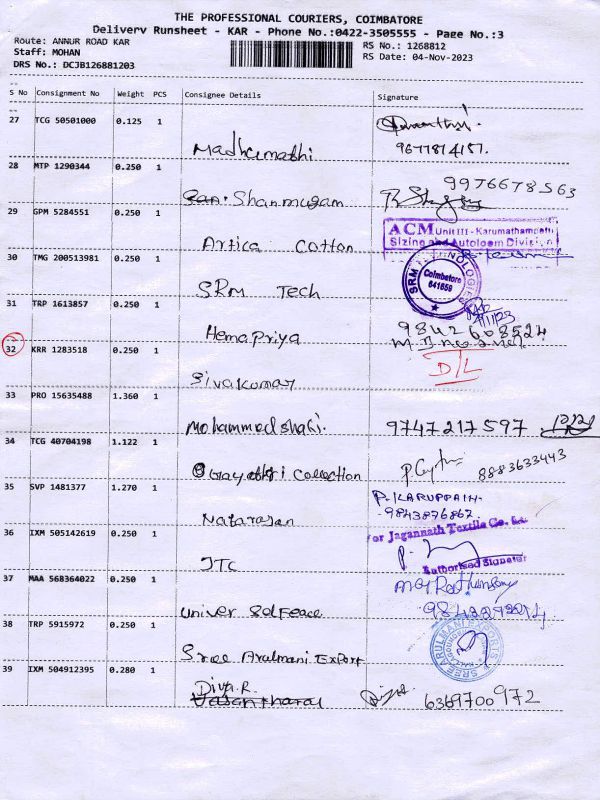 THE PROFESSIONAL COURIERS, COIMBATORE
Delivery Runsheet - KAR - Phone No.:0422-3505555 - Page No.:3
Route: ANNUR ROAD KAR
RS No.: 1268812
Staff: MOHAN
RS Date: 04-Nov-2023
DRS No.: DCJB126881203
S No Consignment No Weight PCS Consignee Details Signature
27 TCG 50501000 0.125 1
Madhumathi 9677814157.
28 MTP 1290344 0.250 1
Shanmugam 9976678563
29 GPM 5284551 0.250 1
ACM Unit III - Karumathampatti
Sizing and Autoloom Division
Artica Cotton
30 TMG 200513981 0.250 1
SRM TECHNOLOGIES Coimbatore 641659
SRM Tech
31 TRP 1613857 0.250 1
Hemapriya 9842608524
32 KRR 1283518 0.250 1
D/L
Sivakumar
33 PRO 15635488 1.360 1
Mohammed shafi. 9747217597
34 TCG 40704198 1.122 1
Gayathri Collection 8883633443
35 SVP 1481377 1.270 1
P. KARUPPAIH.
9843876867.
Natarasan
36 IXM 505142619 0.250 1
For Jagannath Textile Co.
JTC
Authorised Signator
37 MAA 568364022 0.250 1
Univer Selfeace
38 TRP 5915972 0.250 1
SREE ARULMANI EXPORTS
Sree Arulmani Export
39 IXM 504912395 0.280 1
Divya.R.
6369700972